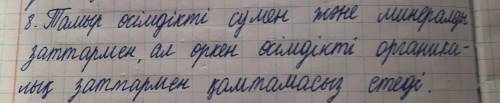 8. Тамыр өсімдікті сумен және минералды
заттармен, ал өркен өсімдікті органика-
лық заттармен қамтамасыз етеді.